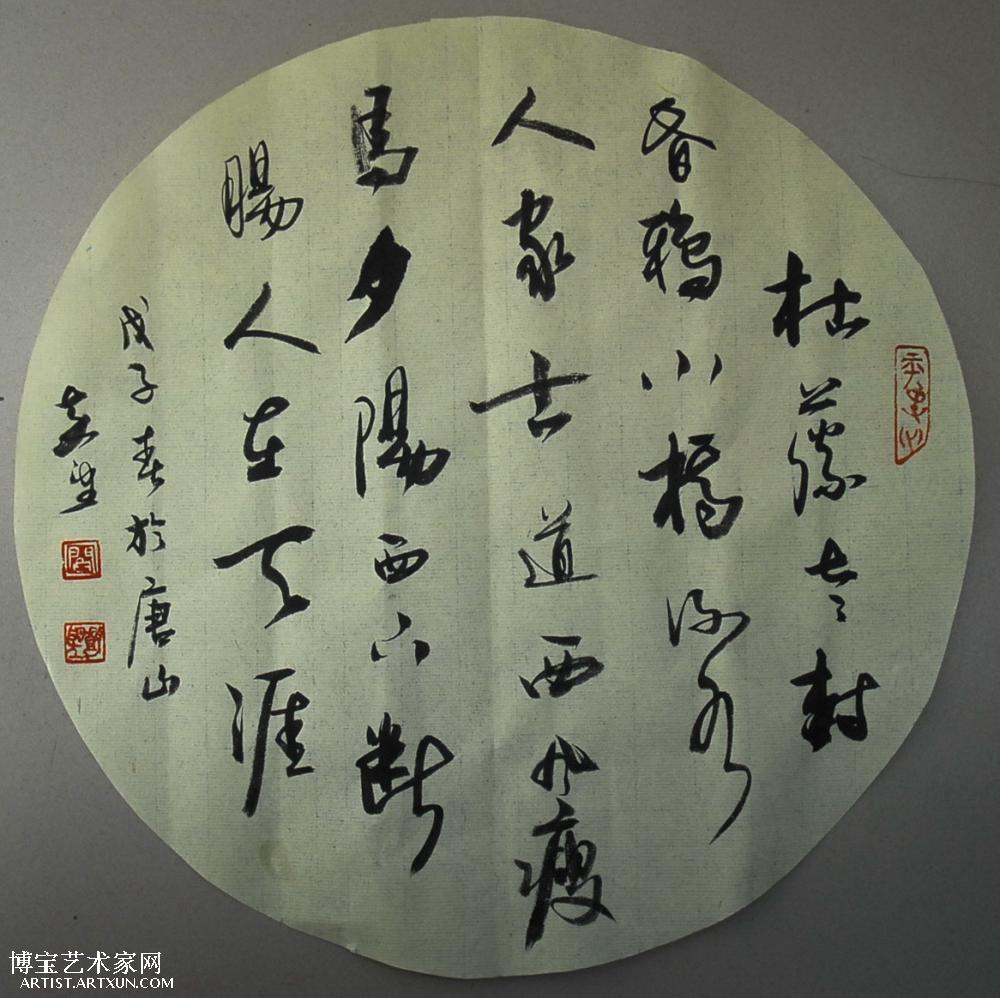 枯藤老樹
昏鴉小橋流水
人家古道西風瘦
馬夕陽西下斷
腸人在天涯
戊子春於唐山
博宝艺术家网
ARTIST.ARTXUN.COM